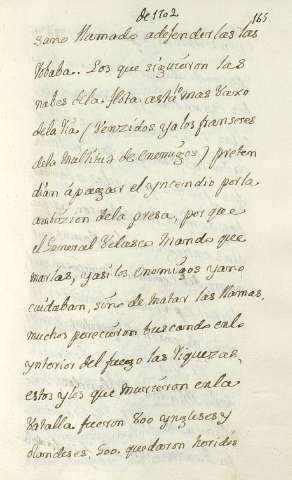 de 1702
165.
sano llamado adefenderlas las
Robaba. Los que siguieron las
nabes de la flota astalo mas vaxo
de la Ria (Venzidos ya los franseses
de la multitud de enemigos) preten
dian apagar el yncendio por la
ambizion de la presa, por que
el General Velasco Mando que
marlas, y asi los enemigos ya no
cuidaban, sino de matar las llamas,
muchos perecieron buscando en lo
ynterior del fuego las Riquezas,
estos y los que murieron en la
Batalla fueron 800 yngleses y
olandeses, 500. quedaron heridos